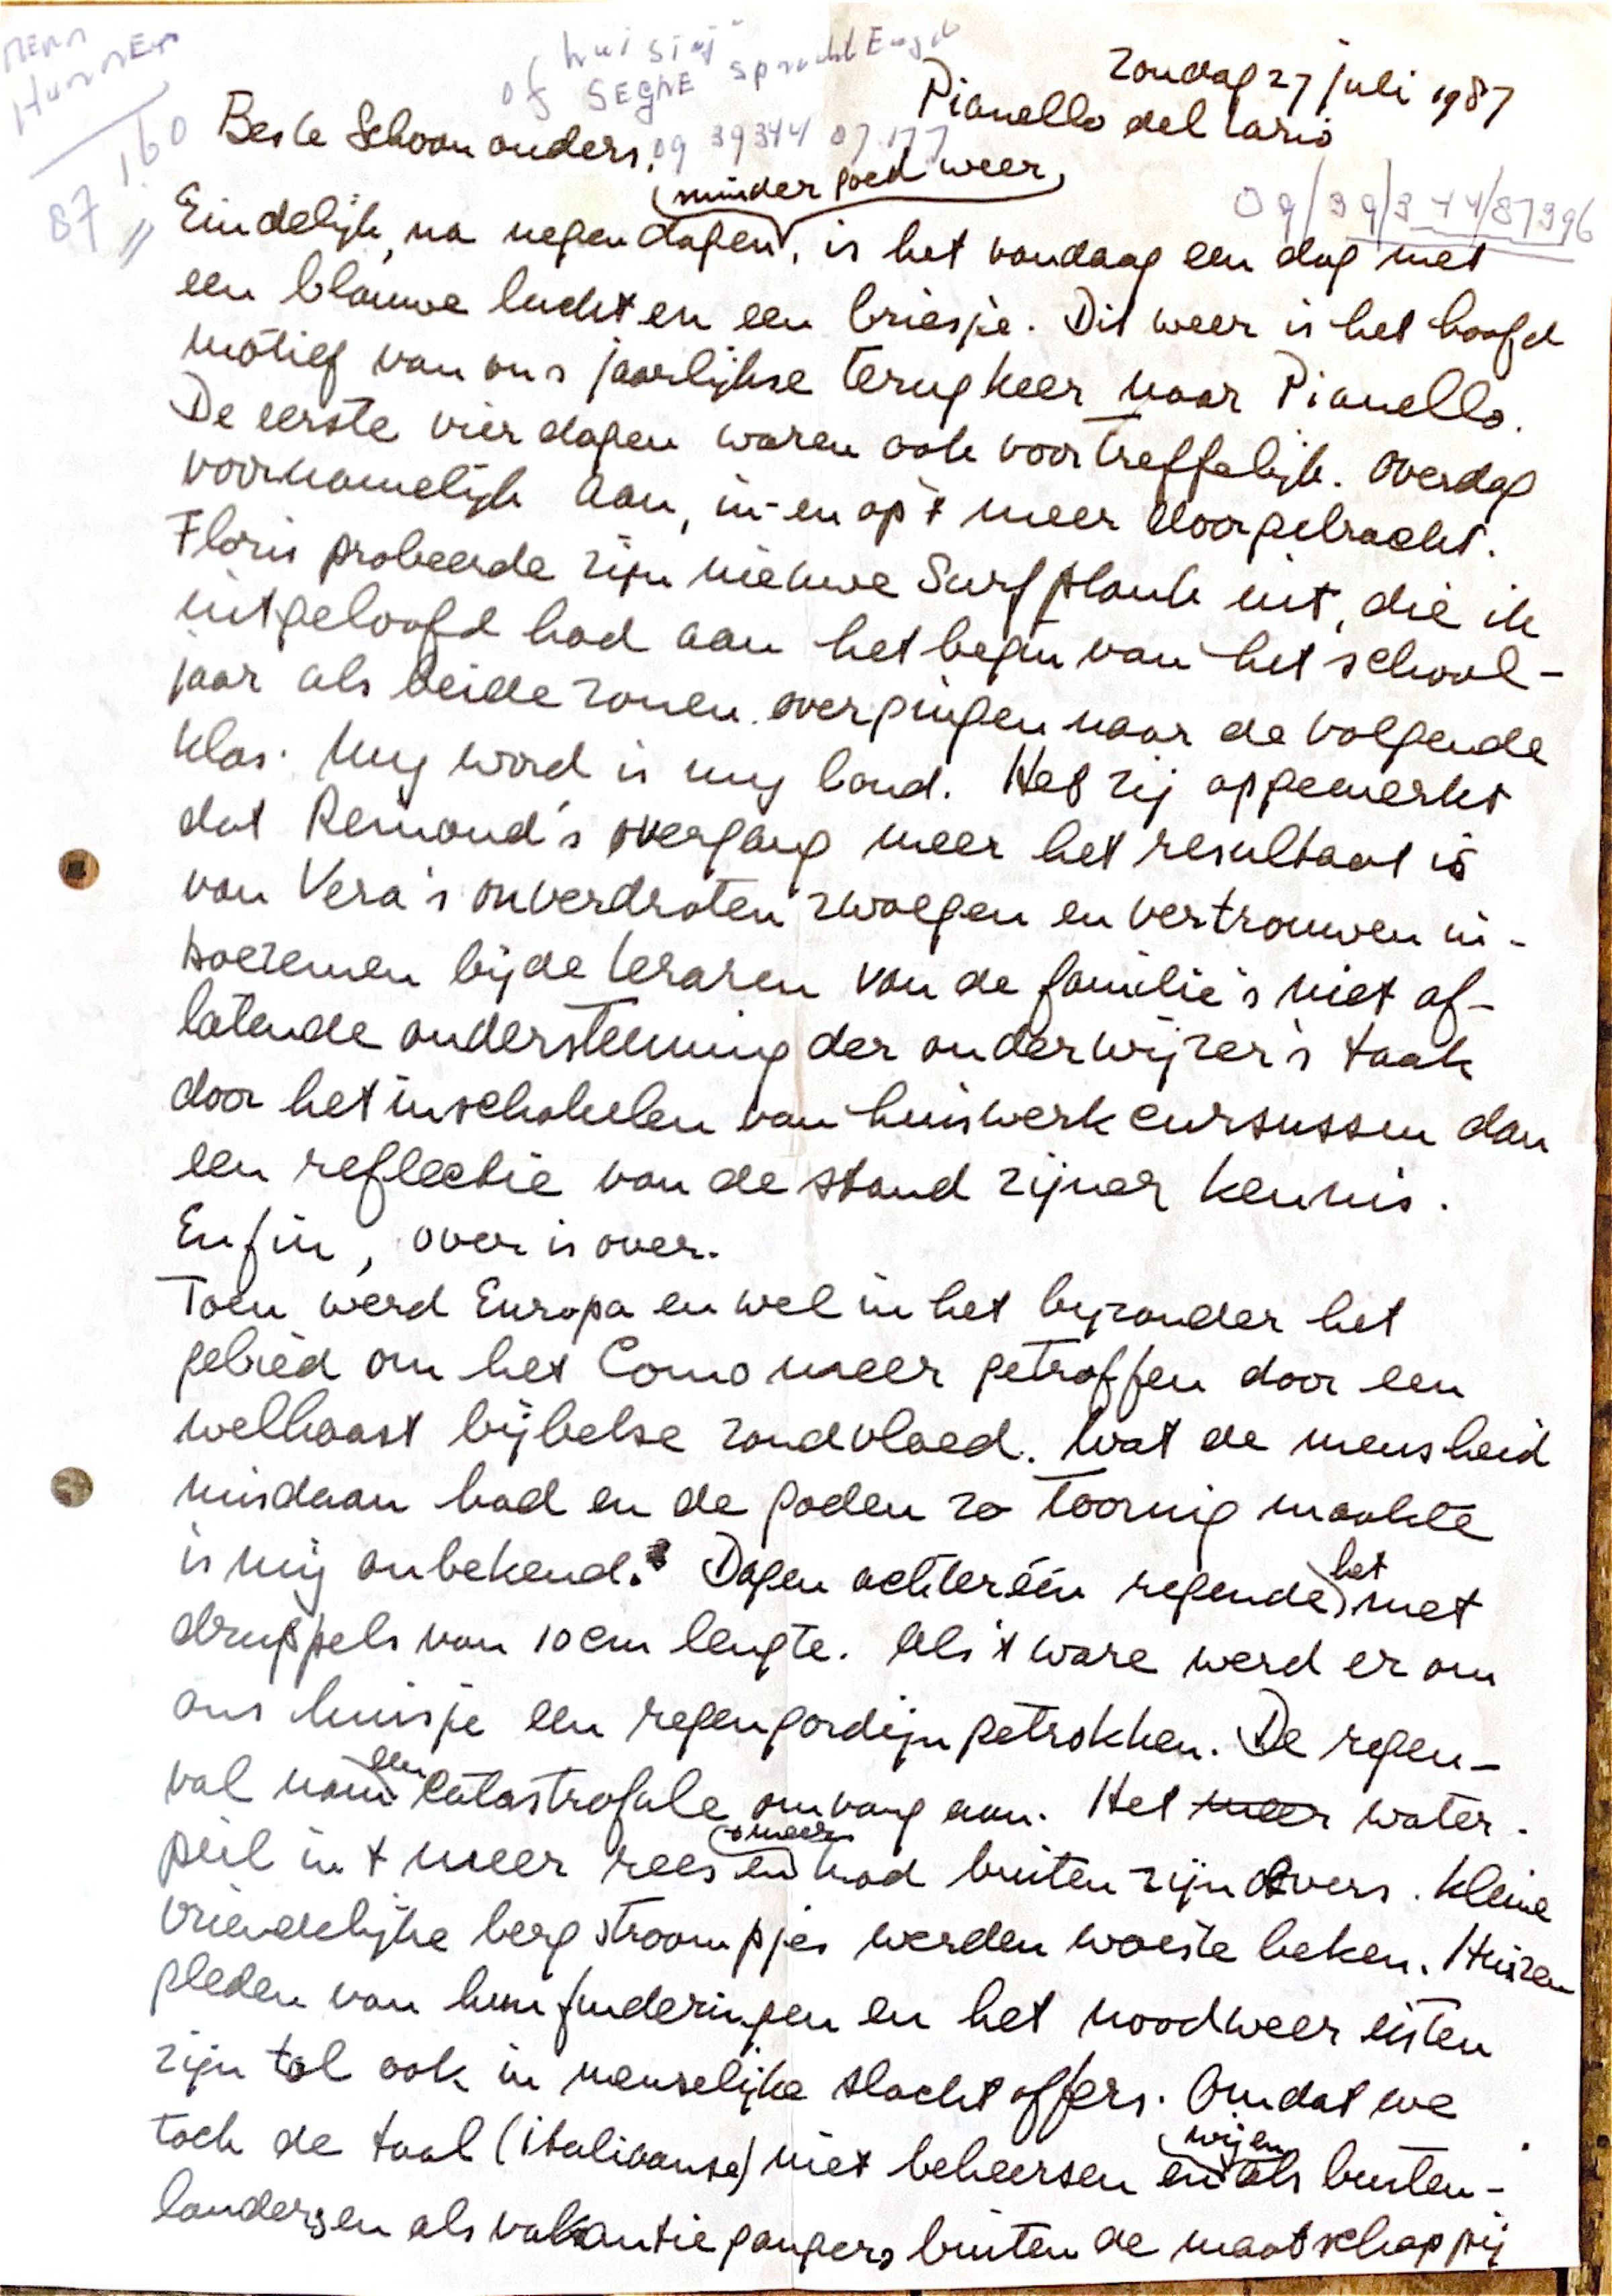 HERR
HUMMER
160
87 "
huisje
of SEGNE spreekt Engels
09 39344 87177
09/39/344/87396
Zondag 27 juli 1987
Pianello del Lario
Beste Schoonouders,
minder goed weer,
Eindelijk, na negen dagen, is het vandaag een dag met
een blauwe lucht en een briesje. Dit weer is het hoofd
motief van ons jaarlijkse terugkeer naar Pianello.
De eerste vier dagen waren ook voortreffelijk. Overdag
voornamelijk aan, in- en op 't meer doorgebracht.
Floris probeerde zijn nieuwe Surfplank uit, die ik
uitgeloofd had aan het begin van het school-
jaar als beide zonen overgingen naar de volgende
klas. My word is my bond. Het zij opgemerkt
dat Remond's overgang meer het resultaat is
van Vera's onverdroten zwoegen en vertrouwen in-
boezemen bij de leraren van de familie's niet af-
latende ondersteuning der onderwijzer's taak
door het inschakelen van huiswerk cursussen dan
een reflectie van de stand zijner kennis.
Enfin, over is over.
Toen werd Europa en wel in het byzonder het
gebied om het Como meer getroffen door een
welhaast bijbelse zondvloed. Wat de mensheid
misdaan had en de goden zo toornig maakte
is mij onbekend. Dagen achteréén regende het met
druppels van 10 cm lengte. Als 't ware werd er om
ons huisje een regengordijn getrokken. De regen-
val nam een catastrofale omvang aan. Het meer water-
peil in 't meer rees en trad buiten zijn oevers. Kleine
vriendelijke berg stroompjes werden woeste beken. Huizen
gleden van hun funderingen en het noodweer eisten
zijn tol ook in menselijke slachtoffers. Omdat we
toch de taal (italiaanse) niet beheersen en wij en als buiten-
landers en als vakantiegangers buiten de maatschappij